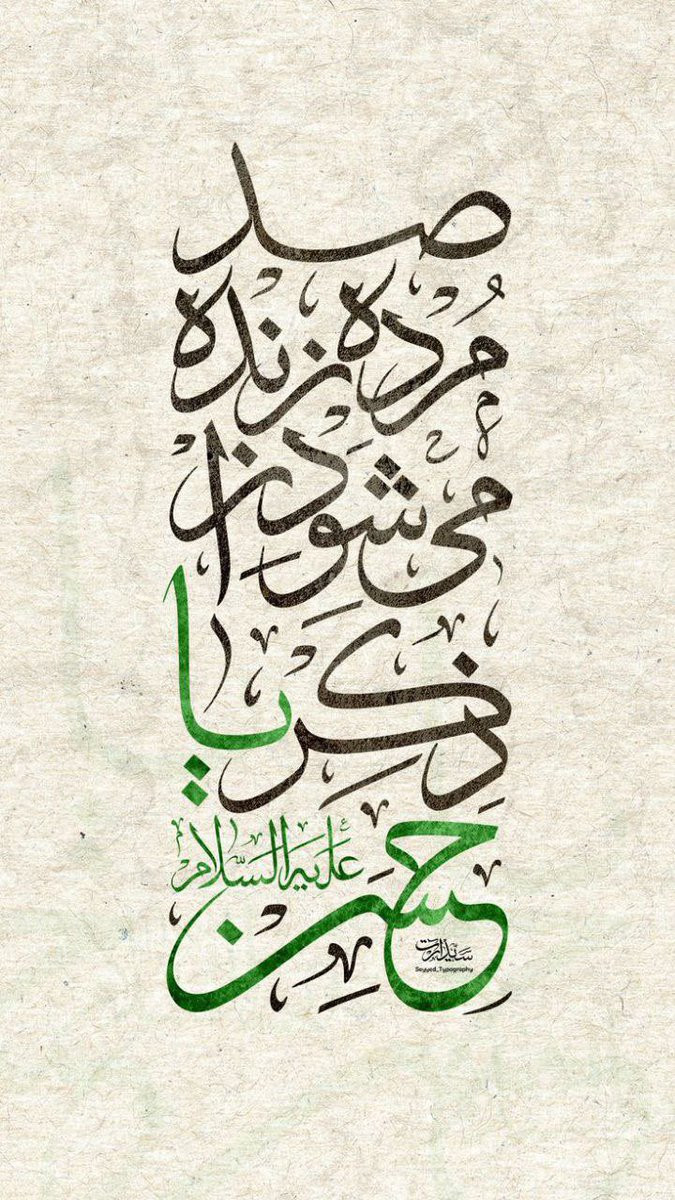 صد
مُرده زنده
می شَود از
ذِکرِ یا
حسن
علیه السلام
سید آرت
Seyyed_Typography